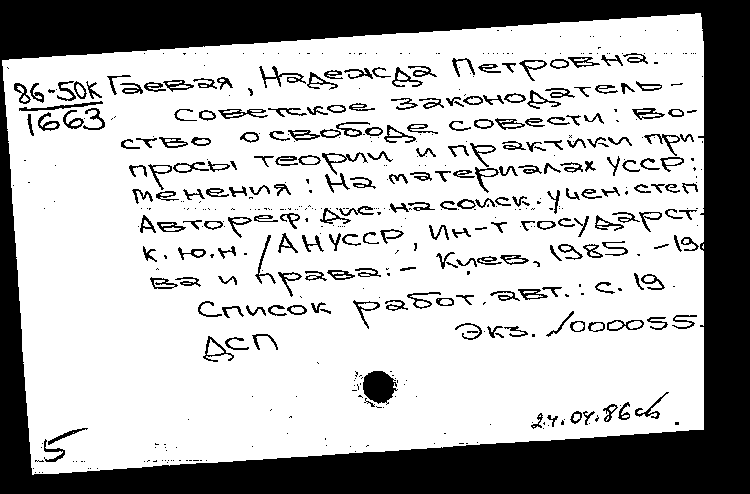 86-50к Гаевая, Надежда Петровна.
1663 Советское законодатель-
ство о свободе совести: Во-
просы теории и практики при-
менения: На материалах УССР:
Автореф. дис. на соиск. учен. степ
к.ю.н. / АН УССР, Ин-т государст-
ва и права. - Киев, 1985. - 19с
Список работ авт.: с. 19.
ДСП Экз. №000055.
24.04.86
5